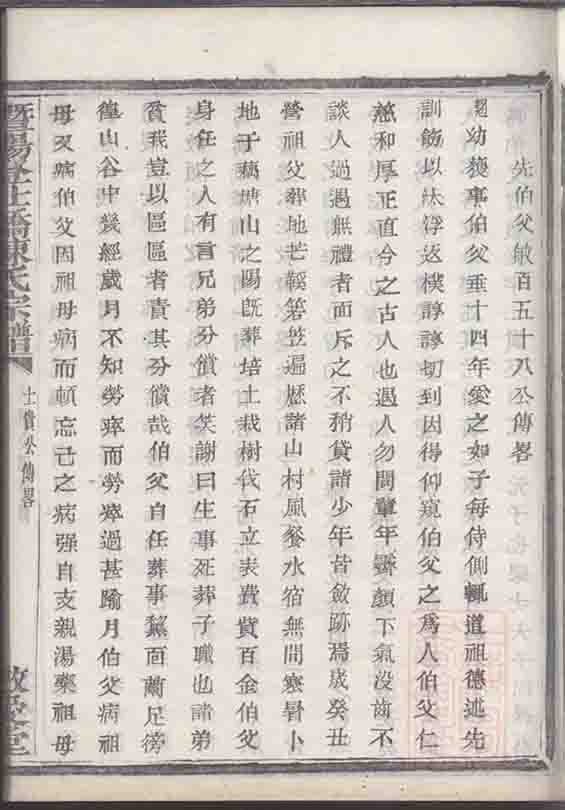 先伯父敏百五十八公傳畧
幼獲事伯父垂十四年愛之如子每侍側輒道祖德述先
訓飭以汰浮返樸諄諄切到因得仰窺伯父之爲人伯父仁
慈和厚正直今之古人也遇人勿問輩年霽顏下氣没齒不
談人過遇無禮者面斥之不稍貸諸少年皆斂跡焉歲癸丑
營祖父葬地芒鞵箬笠遍歷諸山村風餐水宿無間寒暑卜
地于藕塘山之陽旣葬培土栽樹伐石立表費貲百金伯父
身任之人有言兄弟分償者笑謝曰生事死葬子職也諸弟
貧我豈以區區者責其分償哉伯父自任葬事黧面繭足徬
徨山谷中幾經歲月不知勞瘁而勞瘁過甚踰月伯父病祖
母又病伯父因祖母病而頓忘己之病强自支親湯藥祖母
暨陽 橋陳氏宗譜
士賞公傳畧